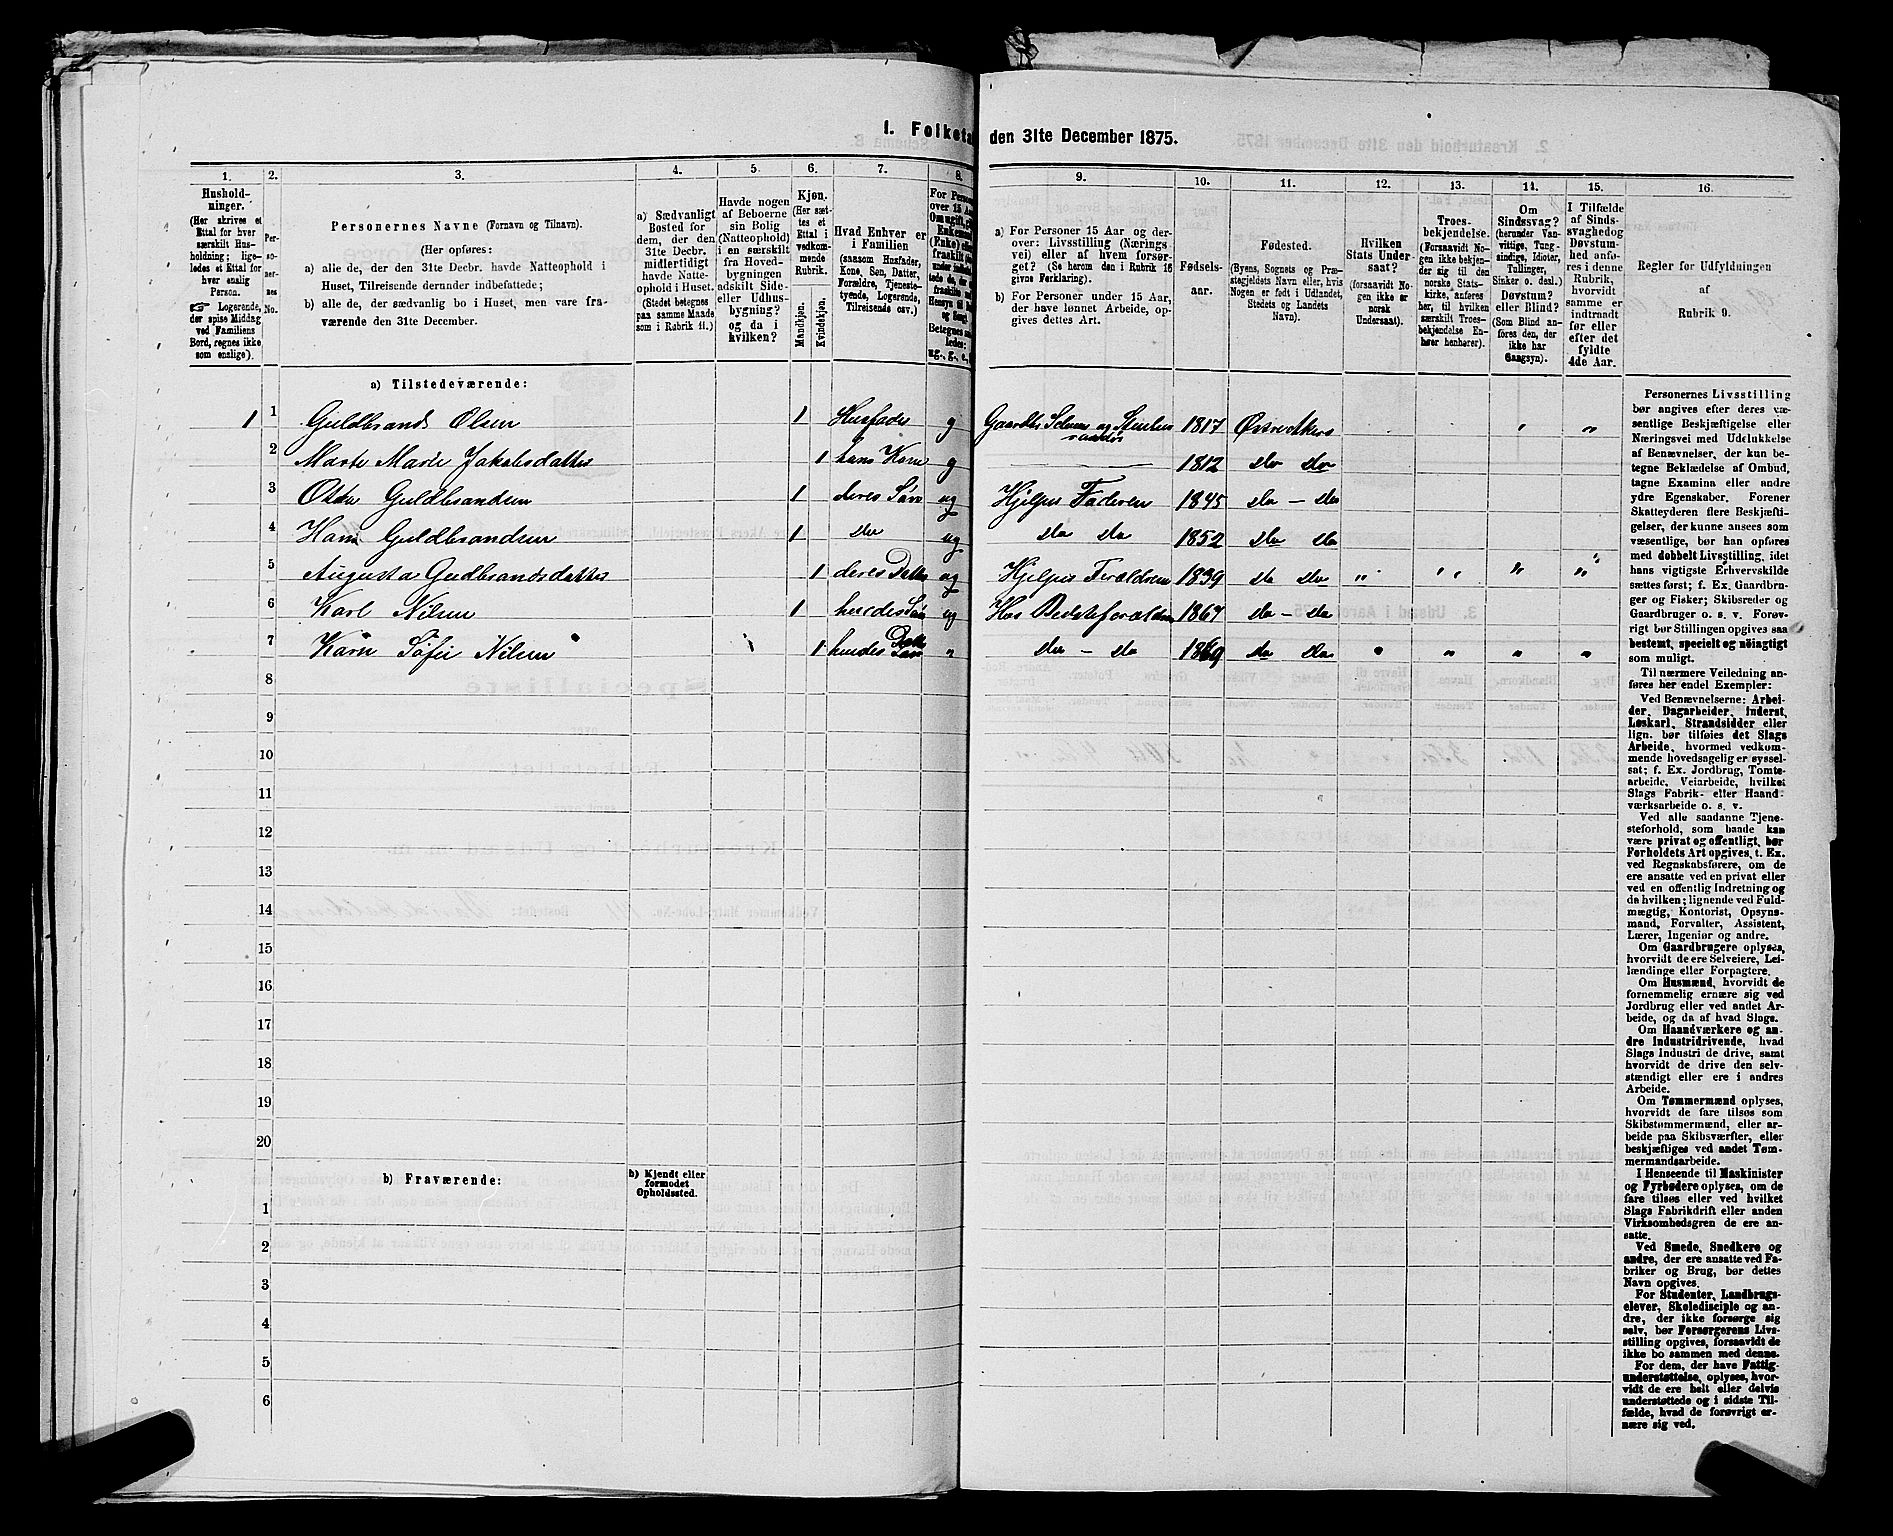 1. Folketa
den 31te December 1875.
1. 2. 3. 4. 5. 6. 7. 8. 9. 10. 11. 12. 13. 14. 15. 16.
Hushold-
ninger.
(Her skrives et
Ettal for hver
særskilt Hus-
holdning; lige-
ledes et Ettal for
hver enslig
Person.
☞ Logerende,
der spise Middag
ved Familiens
Bord, regnes ikke
som enslige).
Per-
soner-
nes
No.
Personernes Navne (Fornavn og Tilnavn).
(Her opføres:
a) alle de, der den 31te Decbr. havde Natteophold i
Huset, Tilreisende derunder indbefattede;
b) alle de, der sædvanlig bo i Huset, men vare fra-
værende den 31te December.
a) Sædvanligt
Bosted for
dem, der den
31te Decbr.
midlertidigt
havde Natte-
ophold i Huset.
(Stedet betegnes
paa samme Maade
som i Rubrik 11.)
Havde nogen
af Beboerne
sin Bolig
(Natteophold)
i en særskilt
fra Hoved-
bygningen
adskilt Side-
eller Udhus-
bygning?
og da i
hvilken?
Kjøn.
(Her sæt-
tes et
Ettal i
vedkom-
mende
Rubrik.
Mandkjøn.
Kvindekjøn.
Hvad Enhver er
i Familien
(saasom Husfader,
Kone, Søn, Datter,
Forældre, Tjeneste-
tyende, Logerende,
Tilreisende osv.)
For Perso
over 15 Aa
Om ugift, gi
Enkeman
(Enke) ell
fraskilt
Hensyn til
og Seng.
Betegnes sa
ledes:
ug., g., e.,
a) For Personer 15 Aar og der-
over: Livsstilling (Nærings
vei) eller af hvem forsør-
get? (Se herom den i Rubrik 16
givne Forklaring).
b) For Personer under 15 Aar,
der have lønnet Arbeide, op-
gives dettes Art.
Fødsels-
aar.
Fødested.
(Byens, Sognets og Præ-
stegjeldets Navn eller, hvis
Nogen er født i Udlandet,
Stedets og Landets
Navn).
Hvilken
Stats Under-
saat?
(forsaavidt No-
gen ikke er
norsk
Undersaat).
Troes-
bekjendelse.
(Forsaavidt No-
gen ikke bekjen-
der sig til den
norske Stats-
kirke, anføres
her, til hvilken
særskilt Troes-
bekjendelse En-
hver henhører).
Om
Sindssvag?
(herunder Van-
vittige, Tung-
sindige, Idioter,
Tullinger,
Sinker o. desl.)
Døvstum?
eller Blind?
(Som Blind an-
føres den, der
ikke har
Gangsyn).
I Tilfælde
af Sinds-
svaghed og
Døvstum-
hed anfø-
res i denne
Rubrik,
hvorvidt
samme er
indtraadt
før eller
efter det
fyldte
4de Aar.
Regler for Udfyldningen
af
Rubrik 9.
a) Tilstedeværende:
1 1 Guldbrand Olsen 1 Husfader g 1817
2 Marte Marie Jakobsdatter 1 hans Kone g 1812 do do
3 Guldbrandsen 1 deres Søn ug Hjelper Faderen 1845 do – do
4 Hans Guldbrandsen 1 do ug do do 1852 do do
5 Augusta Gudbrandsdatter 1 deres Datter ug Hjelper Forældrene 1839 do do " " " " "
6 Karl Nilsen 1 hendes Søn ug Hos Bedsteforældrene 1867 do – do
7 Sofie Nilsen 1 hendes Datter " do – do 1869 do do " " " "
8
9
10
11
12
13
14
15
16
17
18
19
20
b) Fraværende:
b) Kjendt eller
formodet
Opholdssted.
1
2
3
4
5
6
Personernes Livsstilling
bør angives efter deres væ-
sentlige Beskjæftigelse eller
Næringsvei med Udelukkelse
af Benævnelser, der kun be-
tegne Beklædelse af Ombud,
tagne Examina eller andre
ydre Egenskaber. Forener
Skatteyderen flere Beskjæfti-
gelser, der kunne ansees som
væsentlige, bør han opføres
med dobbelt Livsstilling, idet
hans vigtigste Erhvervskilde
sættes først; f. Ex. Gaardbru-
ger og Fisker; Skibsreder og
Gaardbruger o. s. v. Forøv-
rigt bør Stillingen opgives saa
bestemt, specielt og nøiagtigt
som muligt.
Til nærmere Veiledning an-
føres her endel Exempler:
Ved Benævnelserne: Arbei-
der, Dagarbeider, Inderst,
Løskarl, Strandsidder eller
lign. bør tilføies det Slags
Arbeide, hvormed vedkom-
mende hovedsagelig er syssel-
sat; f. Ex. Jordbrug, Tomte-
arbeide, Veiarbeide, hvilket
Slags Fabrik- eller Haand-
værksarbeide o. s. v.
Ved alle saadanne Tjene-
steforhold, som baade kan
være privat og offentligt, bør
Forholdets Art opgives, t. Ex.
ved Regnskabsførere, om de
ere ansatte ved en privat eller
ved en offentlig Indretning og
da hvilken; lignende ved Fuld-
mægtig, Kontorist, Opsyns-
mand, Forvalter, Assistent,
Lærer, Ingeniør og andre.
Om Gaardbrugere oplyses,
hvorvidt de ere Selveiere, Lei-
lændinge eller Forpagtere.
Om Husmænd, hvorvidt de
fornemmelig ernære sig ved
Jordbrug eller ved andet Ar-
beide, og da af hvad Slags.
Om Haandværkere og an-
dre Industridrivende, hvad
Slags Industri de drive, samt
hvorvidt de drive den selv-
stændigt eller ere i andres
Arbeide.
Om Tømmermænd oplyses,
hvorvidt de fare tilsøs som
Skibstømmermænd, eller ar-
beide paa Skibsværfter, eller
beskjæftiges ved andet Tøm-
mermandsarbeide.
I Henseende til Maskinister
og Fyrbødere oplyses, om de
fare tilsøs eller ved hvilket
Slags Fabrikdrift eller anden
Virksomhedsgren de ere an-
satte.
Ved Smede, Snedkere og
andre, der ere ansatte ved Fa-
briker og Brug, bør dettes
Navn opgives.
For Studenter, Landbrugs-
elever, Skoledisciple og an-
dre, der ikke forsørge sig
selv, bør Forsørgerens Livs-
stilling opgives, forsaavidt de
ikke bo sammen med denne.
For dem, der have Fattig-
understøttelse, oplyses, hvor-
vidt de ere helt eller delvis
understøttede og i sidste Til-
fælde, hvad de forøvrigt er-
nære sig ved.